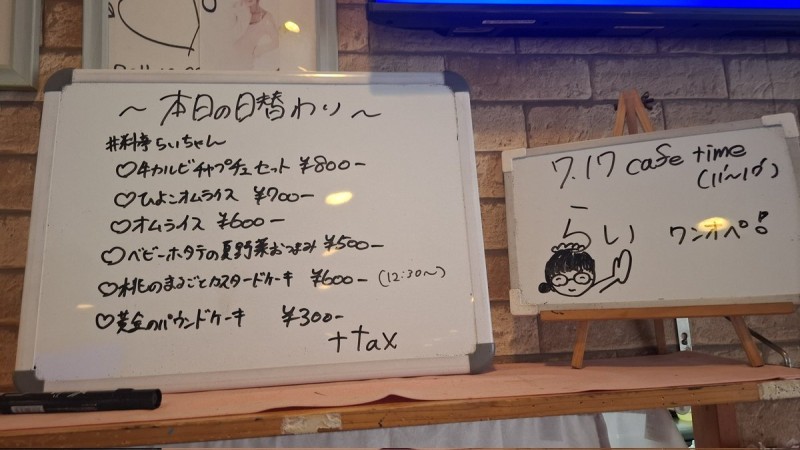 ~ 本日の日替わり ~
#料亭らいちゃん
♡牛カルビチャプチェセット ¥800-
♡ひよこオムライス ¥700-
♡オムライス ¥600-
♡ベビーホタテの夏野菜おつまみ ¥500-
♡桃のまるごとカスタードケーキ ¥600- (12:30~)
♡黄金のパウンドケーキ ¥300-
+tax
7.17 cafe time
らい ワンオペ!